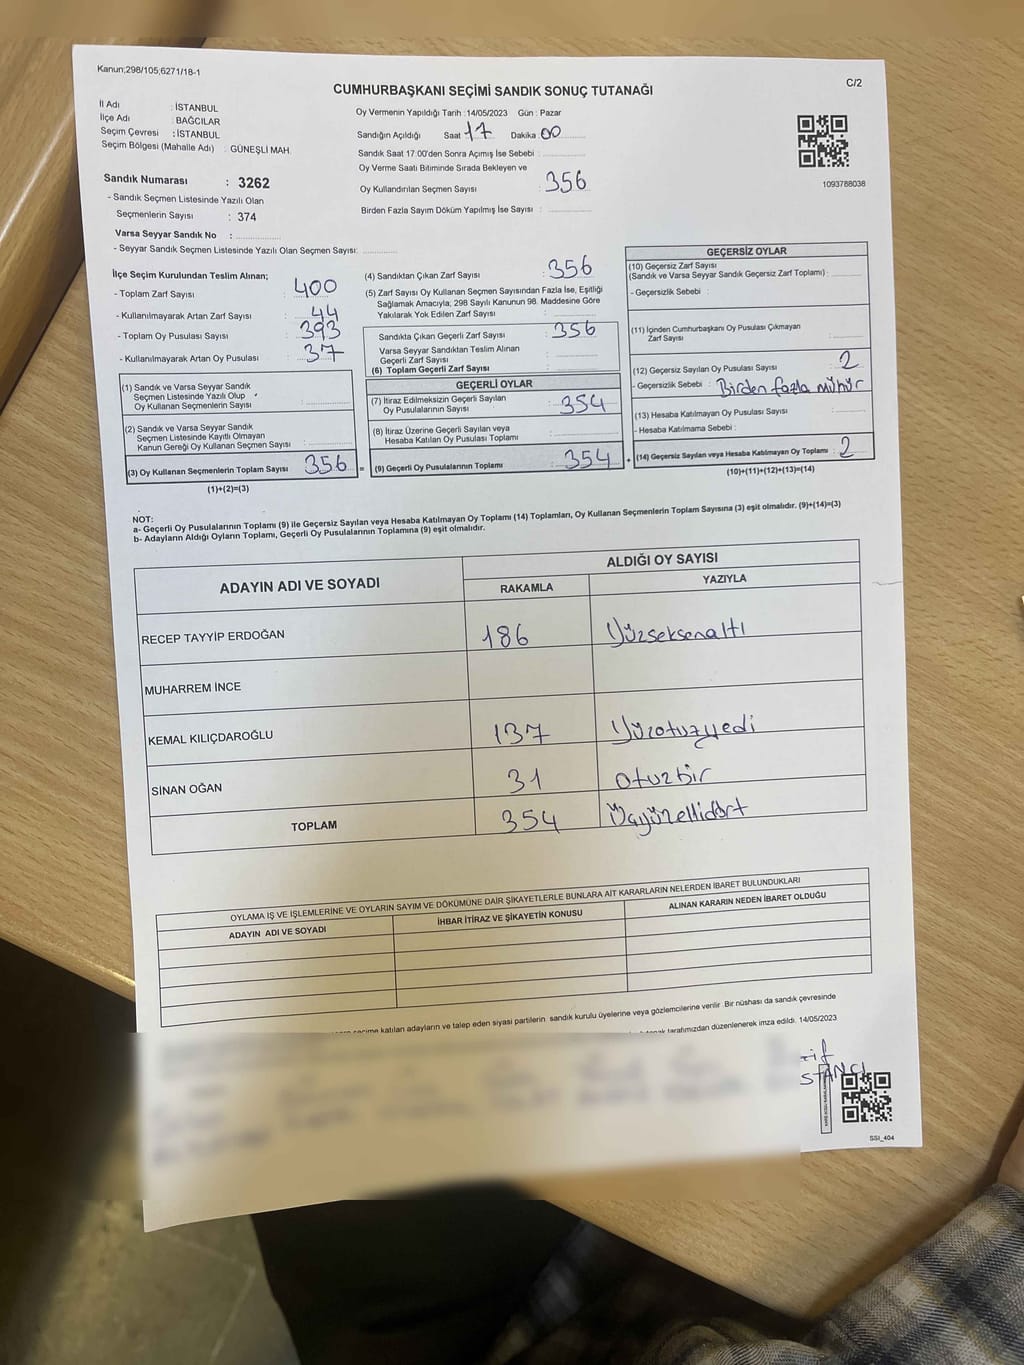 Kanun;298/105;6271/18-1
C/2
CUMHURBAŞKANI SEÇİMİ SANDIK SONUÇ TUTANAĞI
İl Adı : İSTANBUL
İlçe Adı : BAĞCILAR
Seçim Çevresi : İSTANBUL
Seçim Bölgesi (Mahalle Adı) : GÜNEŞLİ MAH.
Sandık Numarası : 3262
- Sandık Seçmen Listesinde Yazılı Olan
Seçmenlerin Sayısı : 374
Varsa Seyyar Sandık No :
- Seyyar Sandık Seçmen Listesinde Yazılı Olan Seçmen Sayısı:
Oy Vermenin Yapıldığı Tarih :14/05/2023 Gün : Pazar
Sandığın Açıldığı Saat 17 Dakika 00
Sandık Saat 17:00'den Sonra Açımış İse Sebebi :
Oy Verme Saati Bitiminde Sırada Bekleyen ve
Oy Kullandırılan Seçmen Sayısı : 356
Birden Fazla Sayım Döküm Yapılmış İse Sayısı :
1093788038
İlçe Seçim Kurulundan Teslim Alınan;
- Toplam Zarf Sayısı : 400
- Kullanılmayarak Artan Zarf Sayısı : 44
- Toplam Oy Pusulası Sayısı : 393
- Kullanılmayarak Artan Oy Pusulası : 37
(1) Sandık ve Varsa Seyyar Sandık
Seçmen Listesinde Yazılı Olup
Oy Kullanan Seçmenlerin Sayısı :
(2) Sandık ve Varsa Seyyar Sandık
Seçmen Listesinde Kayıtlı Olmayan
Kanun Gereği Oy Kullanan Seçmen Sayısı :
(3) Oy Kullanan Seçmenlerin Toplam Sayısı 356 =
(1)+(2)=(3)
(4) Sandıktan Çıkan Zarf Sayısı : 356
(5) Zarf Sayısı Oy Kullanan Seçmen Sayısından Fazla İse, Eşitliği
Sağlamak Amacıyla; 298 Sayılı Kanunun 98. Maddesine Göre
Yakılarak Yok Edilen Zarf Sayısı :
Sandıkta Çıkan Geçerli Zarf Sayısı : 356
Varsa Seyyar Sandıktan Teslim Alınan
Geçerli Zarf Sayısı :
(6) Toplam Geçerli Zarf Sayısı :
GEÇERLİ OYLAR
(7) İtiraz Edilmeksizin Geçerli Sayılan
Oy Pusulalarının Sayısı : 354
(8) İtiraz Üzerine Geçerli Sayılan veya
Hesaba Katılan Oy Pusulası Toplamı :
(9) Geçerli Oy Pusulalarının Toplamı : 354 +
GEÇERSİZ OYLAR
(10) Geçersiz Zarf Sayısı
(Sandık ve Varsa Seyyar Sandık Geçersiz Zarf Toplamı) :
- Geçersizlik Sebebi :
(11) İçinden Cumhurbaşkanı Oy Pusulası Çıkmayan
Zarf Sayısı :
(12) Geçersiz Sayılan Oy Pusulası Sayısı : 2
- Geçersizlik Sebebi : Birden fazla mühür
(13) Hesaba Katılmayan Oy Pusulası Sayısı :
- Hesaba Katılmama Sebebi :
(14) Geçersiz Sayılan veya Hesaba Katılmayan Oy Toplamı : 2
(10)+(11)+(12)+(13)=(14)
NOT:
a- Geçerli Oy Pusulalarının Toplamı (9) ile Geçersiz Sayılan veya Hesaba Katılmayan Oy Toplamı (14) Toplamları, Oy Kullanan Seçmenlerin Toplam Sayısına (3) eşit olmalıdır. (9)+(14)=(3)
b- Adayların Aldığı Oyların Toplamı, Geçerli Oy Pusulalarının Toplamına (9) eşit olmalıdır.
ADAYIN ADI VE SOYADI
ALDIĞI OY SAYISI
RAKAMLA YAZIYLA
RECEP TAYYİP ERDOĞAN 186 Yüzseksenaltı
MUHARREM İNCE
KEMAL KILIÇDAROĞLU 137 Yüzotuzyedi
SİNAN OĞAN 31 otuzbir
TOPLAM 354 Üçyüzellidört
OYLAMA İŞ VE İŞLEMLERİNE VE OYLARIN SAYIM VE DÖKÜMÜNE DAİR ŞİKAYETLERLE BUNLARA AİT KARARLARIN NELERDEN İBARET BULUNDUKLARI
ADAYIN ADI VE SOYADI İHBAR İTİRAZ VE ŞİKAYETİN KONUSU ALINAN KARARIN NEDEN İBARET OLDUĞU
seçime katılan adayların ve talep eden siyasi partilerin sandık kurulu üyelerine veya gözlemcilerine verilir. Bir nüshası da sandık çevresinde
tarafımızdan düzenlenerek imza edildi. 14/05/2023
SSI_404